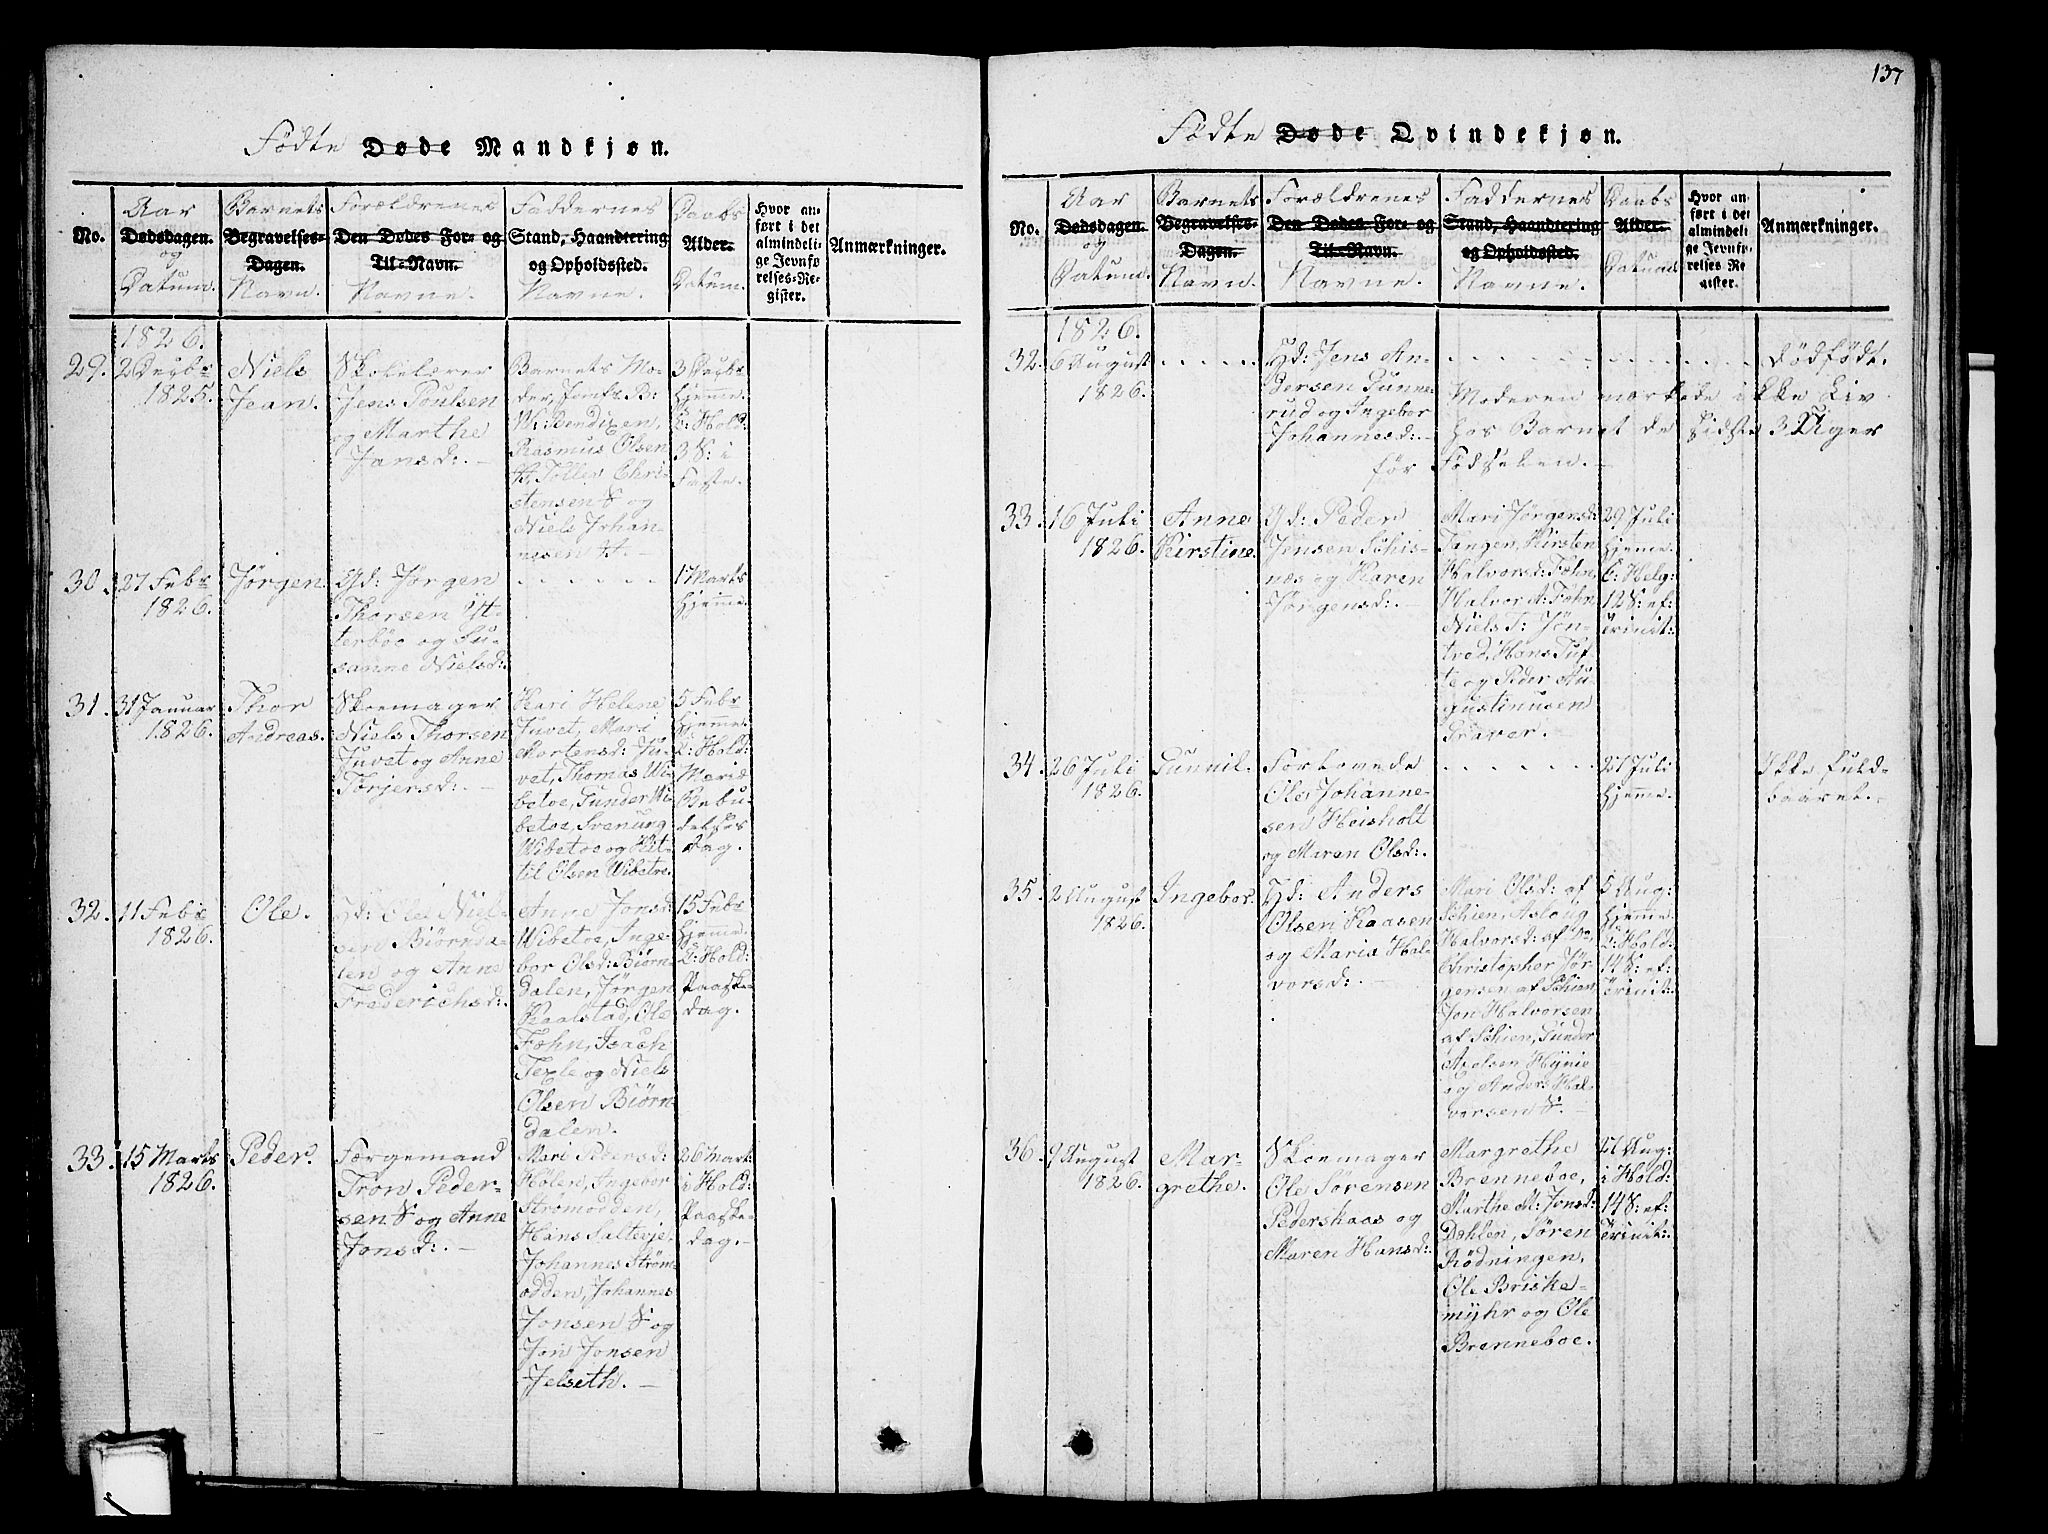 137
Födte Døde Mandkjøn.
No.
Aar
Dødsdagen.
og
Datum.
Barnets
Begravelses-
Dagen.
Navn.
Forældrenes
Den Dødes For- og
Til-Navn.
Navne.
Faddernes
Stand, Haandtering
og Opholdssted.
Navne.
Daabs
Alder.
Datum.
Hvor an-
ført i det
almindeli-
ge Jevnfø-
relses-Re-
gister.
Anmærkninger.
1826.
29.
2 Decbr
1825.
Niels
Jean.
Skolelærer
Jens Poulsen
og Marthe
Jansd:. –
Barnets Mo-
der, Jomfr B:
W: Bendixen,
Rasmus Olsen
Tollef Chri-
stensen S og
Niels Johan-
nesen
3 Decbr
hjemme.
i Hold:
3 S: i
Faste.
30.
27 Febr
1826.
Jørgen.
Gd: Jørgen
Thorsen Yt-
terböe og Su-
sanne Nielsd:.
1 Marts
hjemme.
31.
31 Januar
1826.
Thor
Andreas.
Skoemager
Niels Thorsen
Juvet og Anne
Torjersd:. –
Kari Helene
Juvet, Mari
Mortensd: Ju-
vet, Thomas Wi-
betoe, Gunder Wi-
betoe, Svenung
Wibetoe og Kit-
til Olsen Wibetoe.
5 Febr
hjemme.
i Hold:
Mariæ
Bebu-
delses
dag.
32.
11 Febr
1826.
Ole.
Hd: Ole Niel-
sen Biørnda-
len og Anne
Frederichsd:.
Anne Jonsd:
Wibetoe, Inge-
bor Olsd: Biørn-
dalen, Jørgen
Kaalstad, Ole
Fæhn, Isach
Texle og Niels
Olsen Biørn-
dalen.
15 Febr
hjemme.
i Hold:
Paaske-
dag.
33.
15 Marts
1826.
Peder.
Færgemand
Tron Peder-
sen S og Anne
Jonsd:. –
Mari Pedersd:
Hølen, Ingebor
Strømodden,
Hans Saltevje,
Johannes Strøm-
odden, Johannes
Jonsen S og
Jon Jonsen
Jelseth. –
26 Mart:
i Hold:
Paaske-
dag. –
Födte Døde Qvindekjøn.
No.
Aar
Dødsdagen.
og
Datum.
Barnets
Begravelses-
Dagen.
Navn.
Forældrenes
Den Dødes For- og
Til-Navn.
Navne.
Faddernes
Stand, Haandtering
og Opholdssted.
Navne.
Daabs
Alder.
Datum.
Hvor an-
ført i det
almindeli-
ge Jevnfø-
relses-Re-
gister.
Anmærkninger.
1826.
32.
6 August
1826.
Hd: Jens An-
dersen Gunne-
rud og Ingebor
Johannesd:. –
Dödfödt.
Moderen mærkede ikke Liv
hos Barnet de sidste 3 Uger
før Födselen. –
33.
16 Juli
1826.
Anne
Kirstine.
Gd: Peder
Jensen Schis-
næs og Karen
Jørgensd:. –
Mari Jørgensd:
Tangen, Kirsten
Halvorsd: Fæhn,
Halvor A: Fæhn,
Niels J: Jøn-
tred, Hans Tuf-
te og Peder Au-
gustinusen
Graver. –
29 Juli
hjemme.
i Helg:
12 S: ef:
Trinit:
34.
26 Juli
1826.
Gunnil.
Forlovede
Ole Johanne-
sen Heisholt
og Maren Olsd:.
27 Juli
hjemme.
Ikke fuld-
baaret. –
35.
2 August
1826.
Ingebor.
Hd: Anders
Olsen Kaasen
og Maria Hal-
vorsd:. –
Mari Olsd: af
Schien, Aslaug
Halvorsd: af do,
Christopher Jør-
gensen af Schien,
Jon Halvorsen
af Schien, Gunder
Axelsen Hynie
og Anders Hal-
vorsen S. –
5 Aug:
hjemme.
i Hold:
14 S: ef:
Trinit:
36.
9 August
1826.
Mar-
grethe.
Skoemager
Ole Sørensen
Pederskaas og
Maren Hansd:.
Margrethe
Brenneboe,
Marthe M: Jonsd:
Dahlen, Søren
Rödningen,
Ole Briske-
myhr og Ole
Brenneboe.
27 Aug:
i Hold:
14 S: ef:
Trinit: